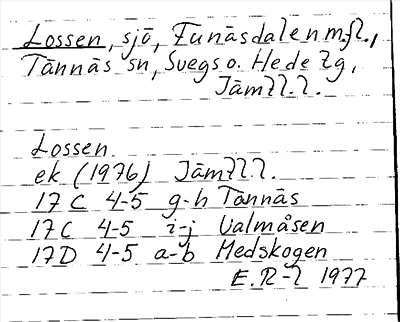 Lossen, sjö, Funäsdalen m.fl.,
Tännäs sn, Svegs o. Hede tg,
Jämtl.l.
Lossen
ek (1976) Jämtl.l.
17 C 4-5 g-h Tännäs
17 C 4-5 i-j Valmåsen
17 D 4-5 a-b Medskogen
E.R-l 1977